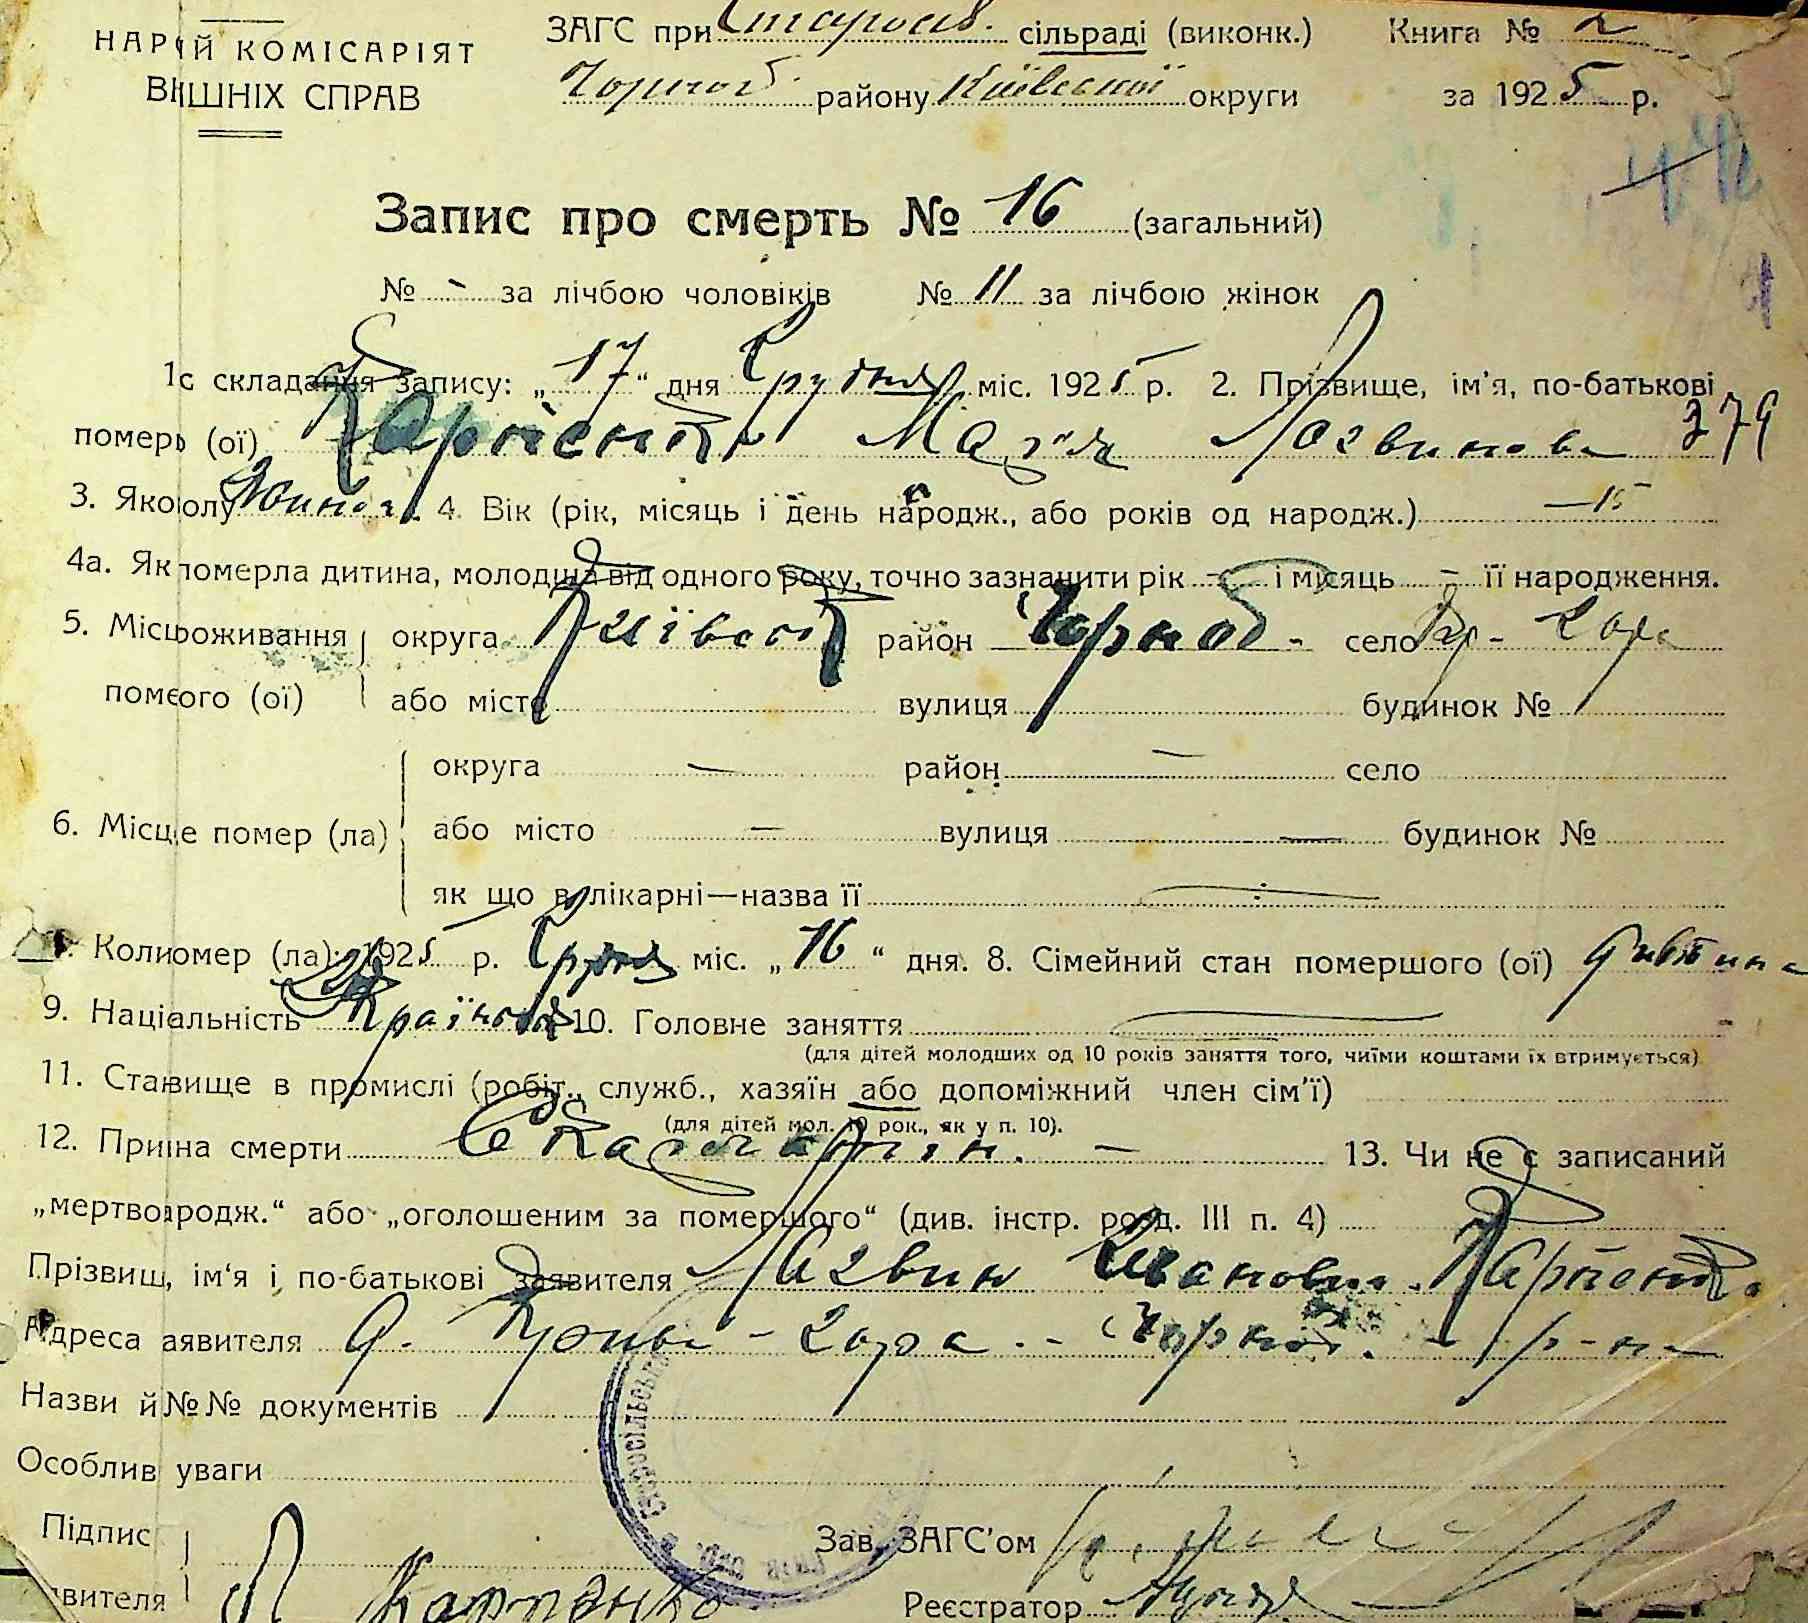 НАР ІЙ КОМІСАРІЯТ
ВН ШНІХ СПРАВ
ЗАГС при Старосіл. сільраді (виконк.) Книга № 2
Чорноб. району Київської округи за 1925 р.
Запис про смерть № 16 (загальний)
№ - за лічбою чоловіків № 11 за лічбою жінок
1 с складання запису: „17“ дня Грудня міс. 1925 р. 2. Прізвище, ім'я, по-батькові
помер (ої) Карпенко Логвинова 379
3. Яко олу Жіноч. 4. Вік (рік, місяць і день народж., або років од народж.) — 15
4а. Як померла дитина, молодша від одного року, точно зазначити рік - і місяць - її народження.
5. Місц оживання округа Київськ район Чорноб - село Кр - Гора
пом ого (ої) або місто вулиця будинок №
округа — район — село
6. Місце помер (ла) або місто — вулиця — будинок №
як що в лікарні—назва її
Коли омер (ла): 1925 р. Грудня міс. „16“ дня. 8. Сімейний стан помершого (ої) дівчина
9. Національність Країнська 10. Головне заняття
(для дітей молодших од 10 років заняття того, чиїми коштами їх втримується)
11. Стан вище в промислі (робіт., служб., хазяїн або допоміжний член сім'ї)
(для дітей мол. 10 рок., як у п. 10).
12. При на смерти Скарлатін. — 13. Чи не є записаний
„мертво родж.“ або „оголошеним за помершого“ (див. інстр. розд. III п. 4)
Прізвищ, ім'я і по-батькові заявителя Логвин Іванович Карпенко
Адреса аявителя д. - Гора - Чорноб. - р-на
Назви й №№ документів
Особлив уваги
Підпис Зав. ЗАГС'ом
вителя Л Карпэнко Реєстратор